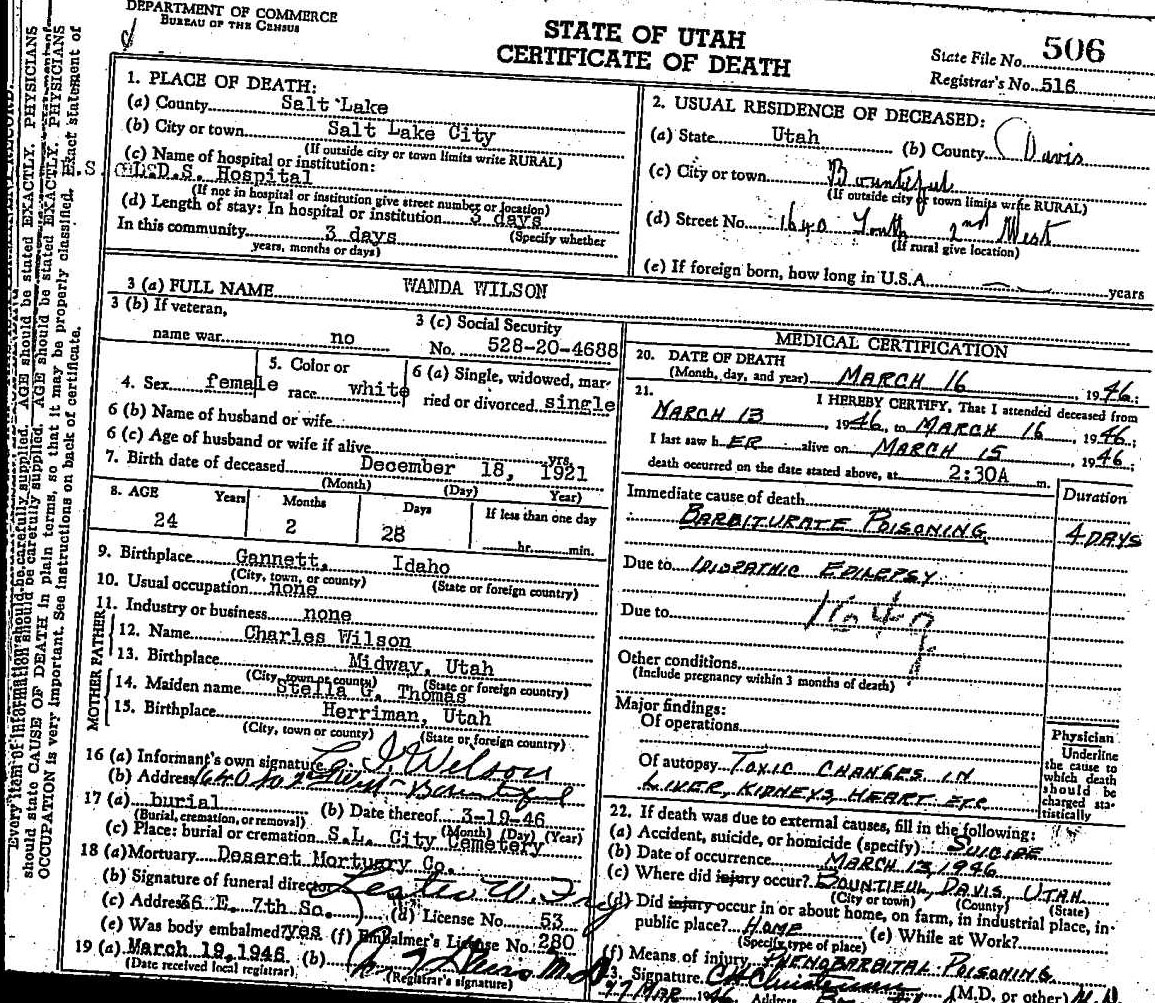 DEPARTMENT OF COMMERCE
BUREAU OF THE CENSUS
STATE OF UTAH
CERTIFICATE OF DEATH
State File No. 506
Registrar's No. 516
1. PLACE OF DEATH:
(a) County Salt Lake
(b) City or town Salt Lake City
(If outside city or town limits write RURAL)
(c) Name of hospital or institution:
L.D.S. Hospital
(If not in hospital or institution give street number or location)
(d) Length of stay: In hospital or institution 3 days
(Specify whether
In this community 3 days
years, months or days)
2. USUAL RESIDENCE OF DECEASED:
(a) State Utah (b) County Davis
(c) City or town Bountiful
(If outside city or town limits write RURAL)
(d) Street No. 1640 South 2nd West
(If rural give location)
(e) If foreign born, how long in U.S.A. years
3 (a) FULL NAME WANDA WILSON
3 (b) If veteran,
name war no
3 (c) Social Security
No. 528-20-4688
4. Sex female
5. Color or
race white
6 (a) Single, widowed, mar-
ried or divorced single
6 (b) Name of husband or wife
6 (c) Age of husband or wife if alive yrs.
7. Birth date of deceased December 18, 1921
(Month) (Day) Year)
8. AGE Years Months Days If less than one day
24 2 28 hr. min.
9. Birthplace Gannett, Idaho
(City, town, or county) (State or foreign country)
10. Usual occupation none
11. Industry or business none
FATHER
12. Name Charles Wilson
13. Birthplace Midway, Utah
(City, town or county) (State or foreign country)
MOTHER
14. Maiden name Stella G. Thomas
15. Birthplace Herriman, Utah
(City, town or county) (State or foreign country)
16 (a) Informant's own signature C. I. Wilson
(b) Address 1640 So 2nd West Bountiful
17 (a) burial (b) Date thereof 3-19-46
(Burial, cremation, or removal) (Month) (Day) (Year)
(c) Place: burial or cremation S.L. City Cemetery
18 (a) Mortuary Deseret Mortuary Co.
(b) Signature of funeral director Leslie W.
(c) Address 36 E. 7th So. (d) License No. 53
(e) Was body embalmed? yes (f) Embalmer's License No. 280
19 (a) March 19, 1946 (b)
(Date received local registrar) (Registrar's signature)
MEDICAL CERTIFICATION
20. DATE OF DEATH
(Month, day, and year) MARCH 16 1946;
21. I HEREBY CERTIFY, That I attended deceased from
MARCH 13, 1946, to MARCH 16, 1946;
I last saw hER alive on MARCH 15, 1946;
death occurred on the date stated above, at 2:30A m.
Duration
Immediate cause of death
BARBITURATE POISONING 4 DAYS
Due to IDIOPATHIC EPILEPSY
Due to
Other conditions
(Include pregnancy within 3 months of death)
Major findings:
Of operations
Of autopsy TOXIC CHANGES IN
LIVER, KIDNEYS, HEART ETC
Physician
Underline
the cause to
which death
should be
charged sta-
tistically
22. If death was due to external causes, fill in the following:
(a) Accident, suicide, or homicide (specify) SUICIDE
(b) Date of occurrence MARCH 13, 1946
(c) Where did injury occur? BOUNTIFUL, DAVIS, UTAH
(City or town) (County) (State)
(d) Did injury occur in or about home, on farm, in industrial place, in
public place? HOME (e) While at Work?
(Specify type of place)
(f) Means of injury PHENOBARBITAL POISONING
23. Signature (M.D. or other) M.D.
MAR 1946 Address
Every item of information should be carefully supplied. AGE should be stated EXACTLY. PHYSICIANS
should state CAUSE OF DEATH in plain terms, so that it may be properly classified. Exact statement of
OCCUPATION is very important. See instructions on back of certificate.